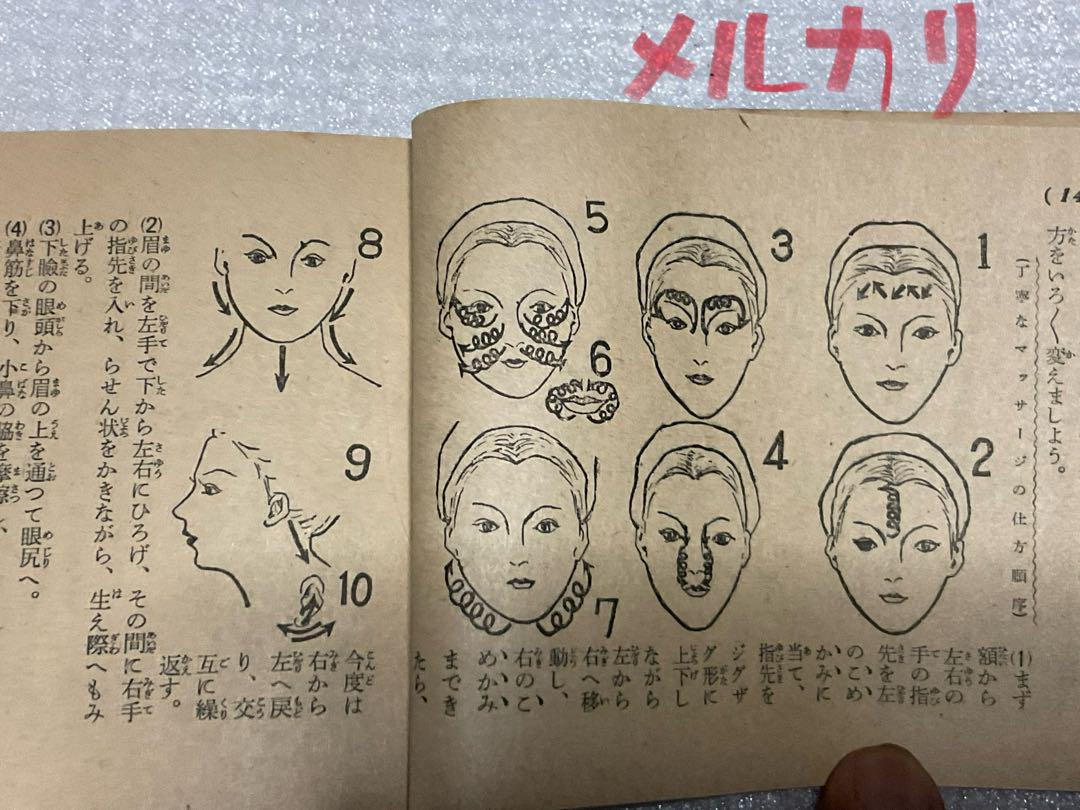 メルカリ
(14
方をいろ〳〵変えましよう。
(丁寧なマッサージの仕方順序)
1
2
3
4
5
6
7
(1)まず
額から
左右の
手の指
先を左
のこめ
かみに
当て、
指先を
ジグザ
グ形に
上下し
ながら
左から
右へ移
動し、
右のこ
めかみ
までき
たら、
8
9
10
今度は
右から
左へ戻
り、交
互に繰
返す。
(2)眉の間を左手で下から左右にひろげ、その間に右手
の指先を入れ、らせん状をかきながら、生え際へもみ
上げる。
(3)下瞼の眼頭から眉の上を通つて眼尻へ。
(4)鼻筋を下り、小鼻の脇を摩擦